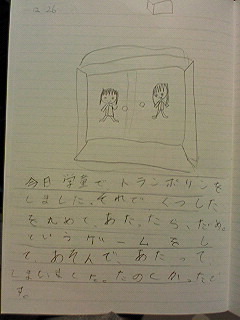 2. 26
今日 学童で トランポリンを
しました。それで くつした
をなげて あたったら、だめ。
という ゲーム を し
て あそんで、あたって
しまいました。たのしかったで
す。